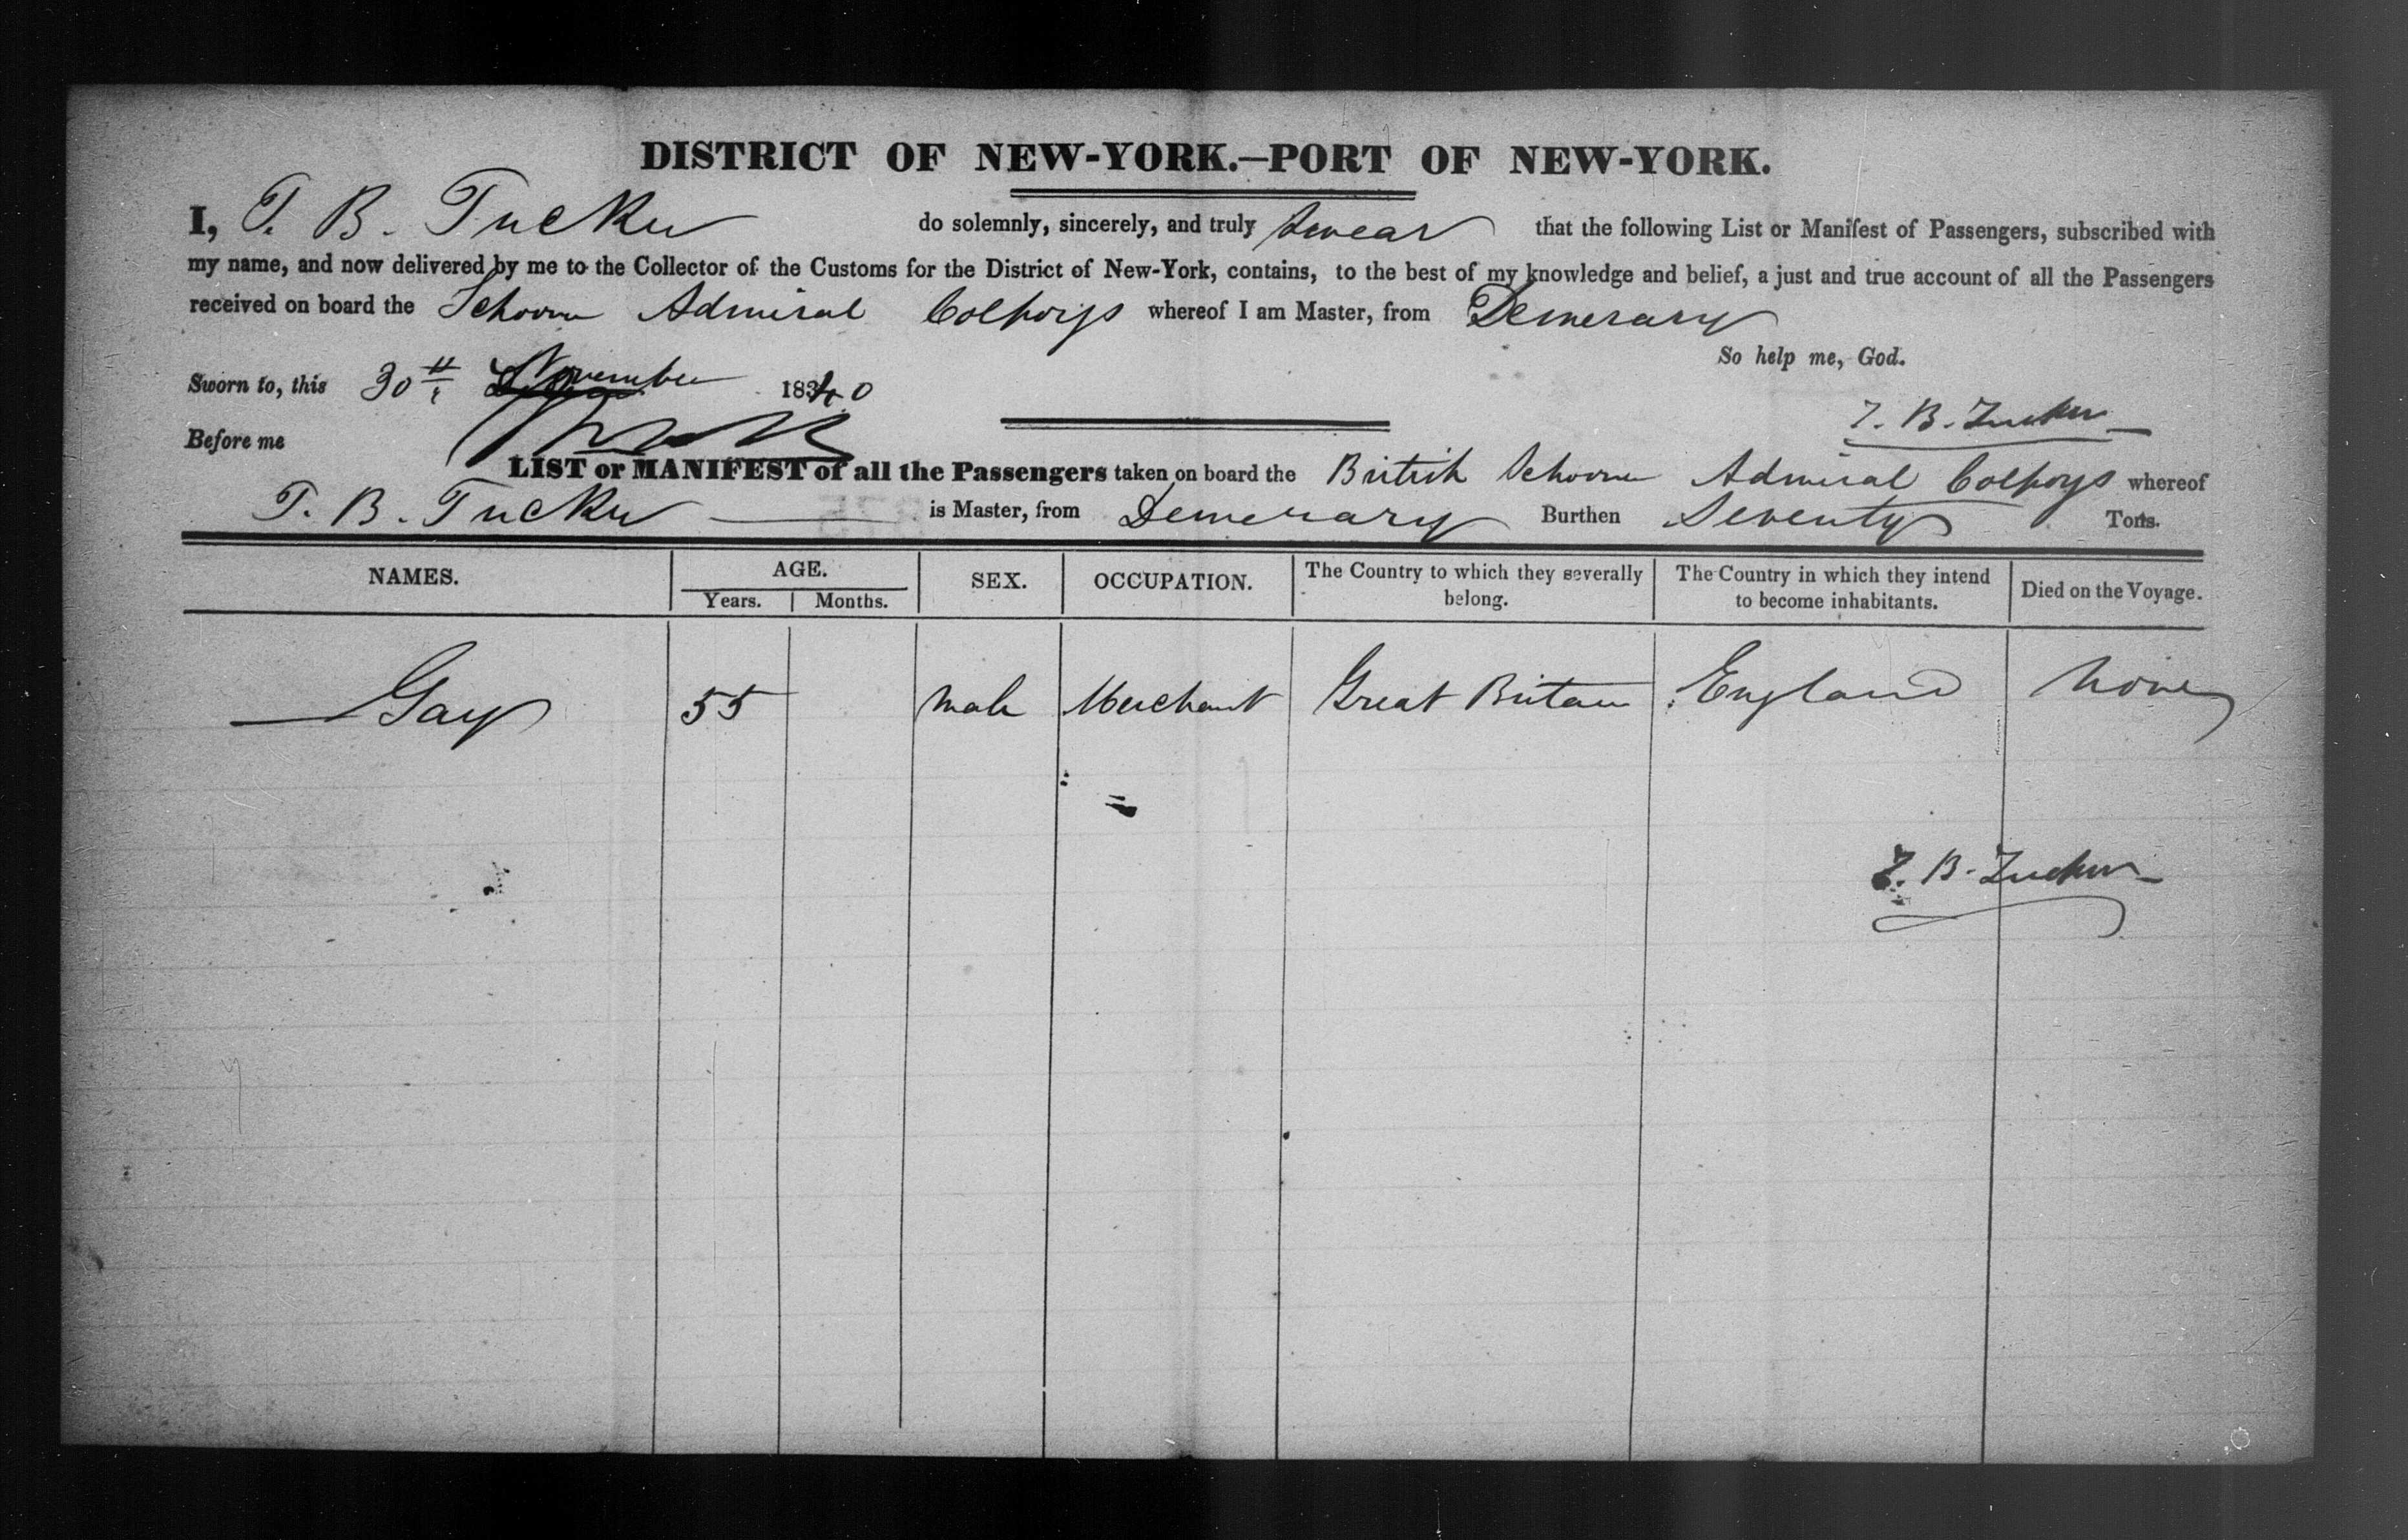 DISTRICT OF NEW-YORK.—PORT OF NEW-YORK.
I, T. B. Tucker do solemnly, sincerely, and truly swear that the following List or Manifest of Passengers, subscribed with
my name, and now delivered by me to the Collector of the Customs for the District of New-York, contains, to the best of my knowledge and belief, a just and true account of all the Passengers
received on board the Schooner Admiral Colpoys whereof I am Master, from Demerary
So help me, God.
Sworn to, this 30th November 1840
T. B. Tucker
Before me
LIST or MANIFEST of all the Passengers taken on board the British Schooner Admiral Colpoys whereof
T. B. Tucker is Master, from Demerary Burthen Seventy Tons.
NAMES. AGE. Years. Months. SEX. OCCUPATION. The Country to which they severally belong. The Country in which they intend to become inhabitants. Died on the Voyage.
— Gay 55 male Merchant Great Britain England None
T. B. Tucker